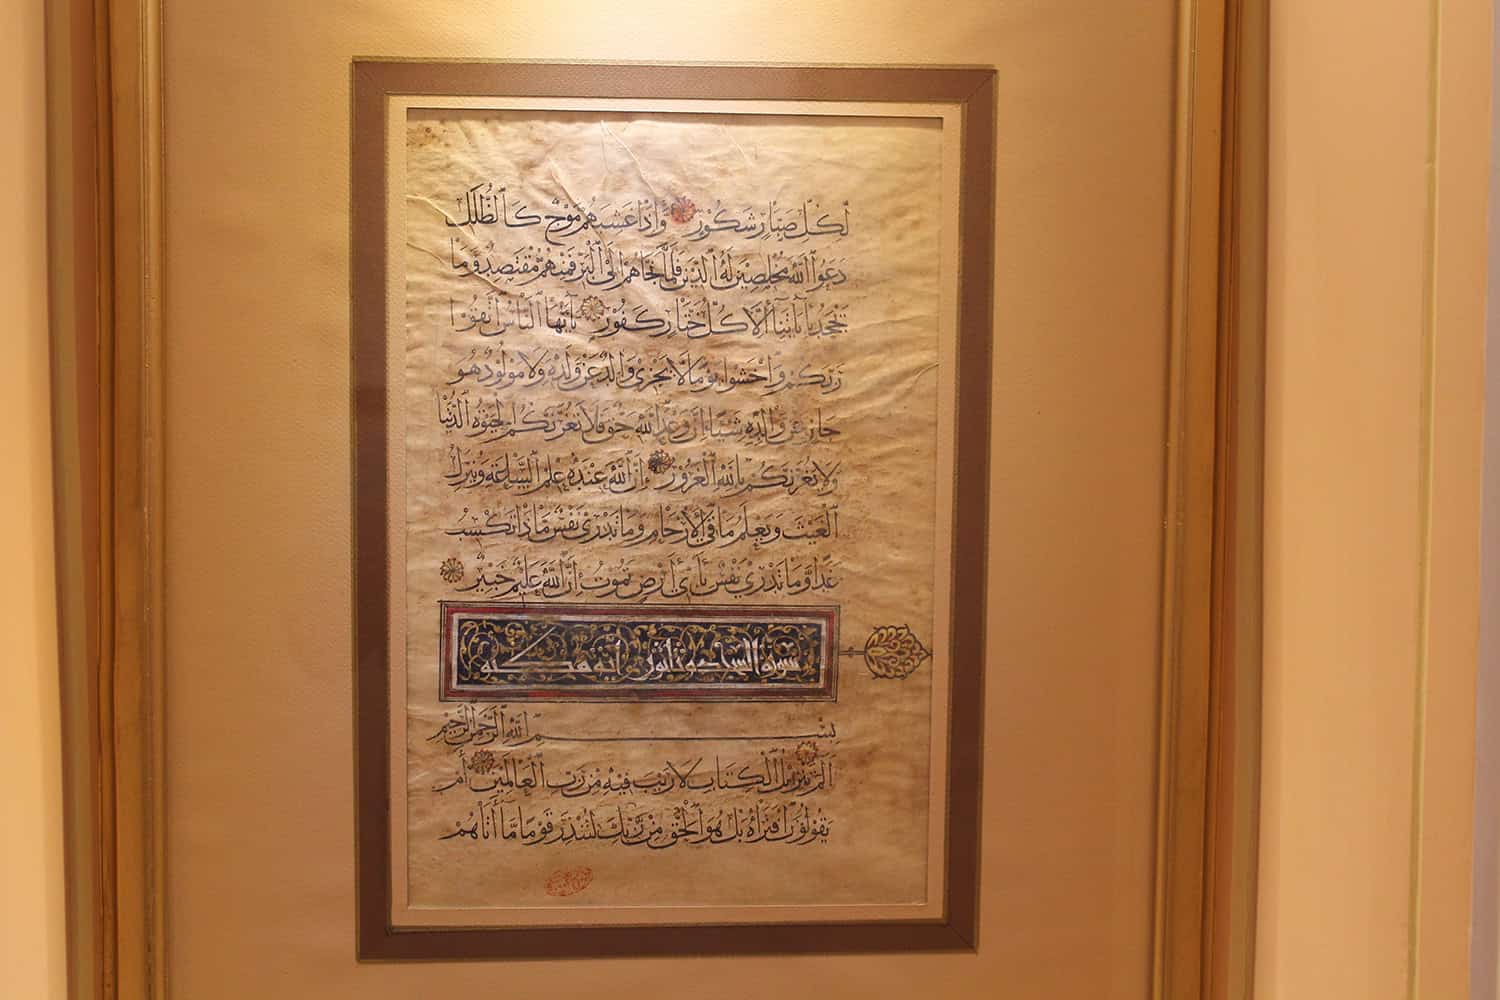 لِكُلِّ صَبَّارٍ شَكُورٍ وَإِذَا غَشِيَهُم مَّوْجٌ كَالظُّلَلِ
دَعَوُا اللَّهَ مُخْلِصِينَ لَهُ الدِّينَ فَلَمَّا نَجَّاهُمْ إِلَى الْبَرِّ فَمِنْهُم مُّقْتَصِدٌ وَمَا
يَجْحَدُ بِآيَاتِنَا إِلَّا كُلُّ خَتَّارٍ كَفُورٍ يَا أَيُّهَا النَّاسُ اتَّقُوا
رَبَّكُمْ وَاخْشَوْا يَوْمًا لَّا يَجْزِي وَالِدٌ عَن وَلَدِهِ وَلَا مَوْلُودٌ هُوَ
جَازٍ عَن وَالِدِهِ شَيْئًا إِنَّ وَعْدَ اللَّهِ حَقٌّ فَلَا تَغُرَّنَّكُمُ الْحَيَوٰةُ الدُّنْيَا
وَلَا يَغُرَّنَّكُم بِاللَّهِ الْغَرُورُ إِنَّ اللَّهَ عِنْدَهُ عِلْمُ السَّاعَةِ وَيُنَزِّلُ
الْغَيْثَ وَيَعْلَمُ مَا فِي الْأَرْحَامِ وَمَا تَدْرِي نَفْسٌ مَّاذَا تَكْسِبُ
غَدًا وَمَا تَدْرِي نَفْسٌ بِأَيِّ أَرْضٍ تَمُوتُ إِنَّ اللَّهَ عَلِيمٌ خَبِيرٌ
سورة السجدة ثلثون آية مكية
بِسْمِ اللَّهِ الرَّحْمَنِ الرَّحِيمِ
الم تَنْزِيلُ الْكِتَابِ لَا رَيْبَ فِيهِ مِن رَّبِّ الْعَالَمِينَ أَمْ
يَقُولُونَ افْتَرَاهُ بَلْ هُوَ الْحَقُّ مِن رَّبِّكَ لِتُنْذِرَ قَوْمًا مَّا أَتَاهُمْ